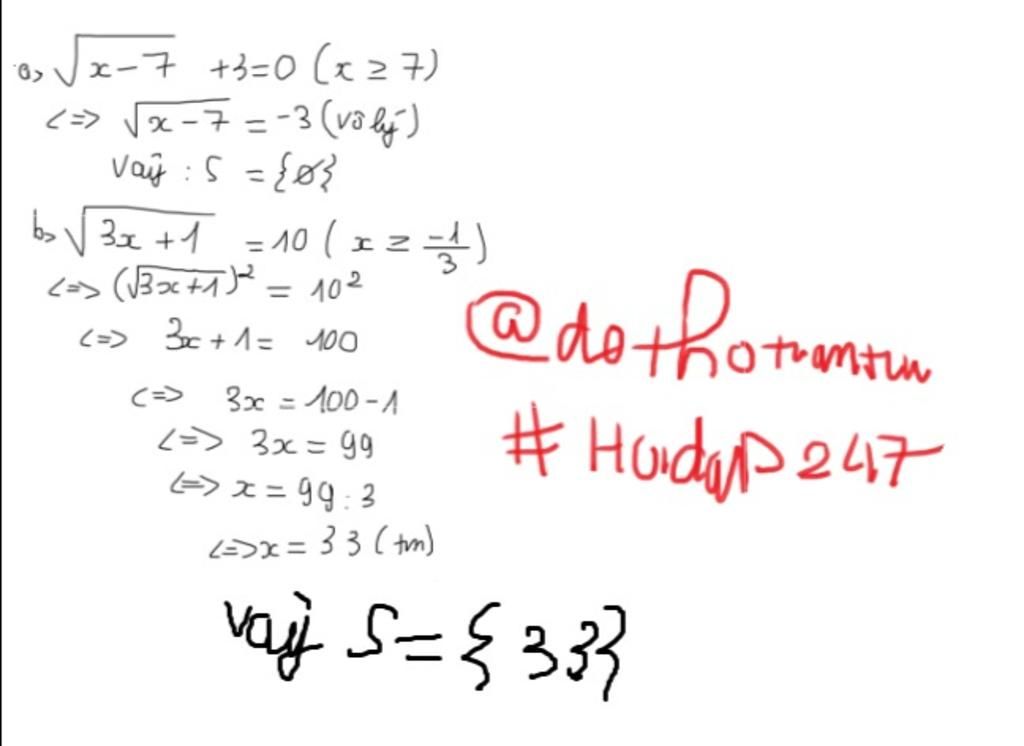 a, √x-7 +3=0 (x ≥ 7)
<=> √x-7 = -3 (vô lý)
Vậy : S = {ø}
b, √3x+1 = 10 ( x ≥ -1/3 )
<=> (√3x+1)² = 10²
<=> 3x+1 = 100
<=> 3x = 100-1
<=> 3x = 99
<=> x = 99:3
<=> x = 33 (tm)
vậy S = { 33}
# Hoidap247